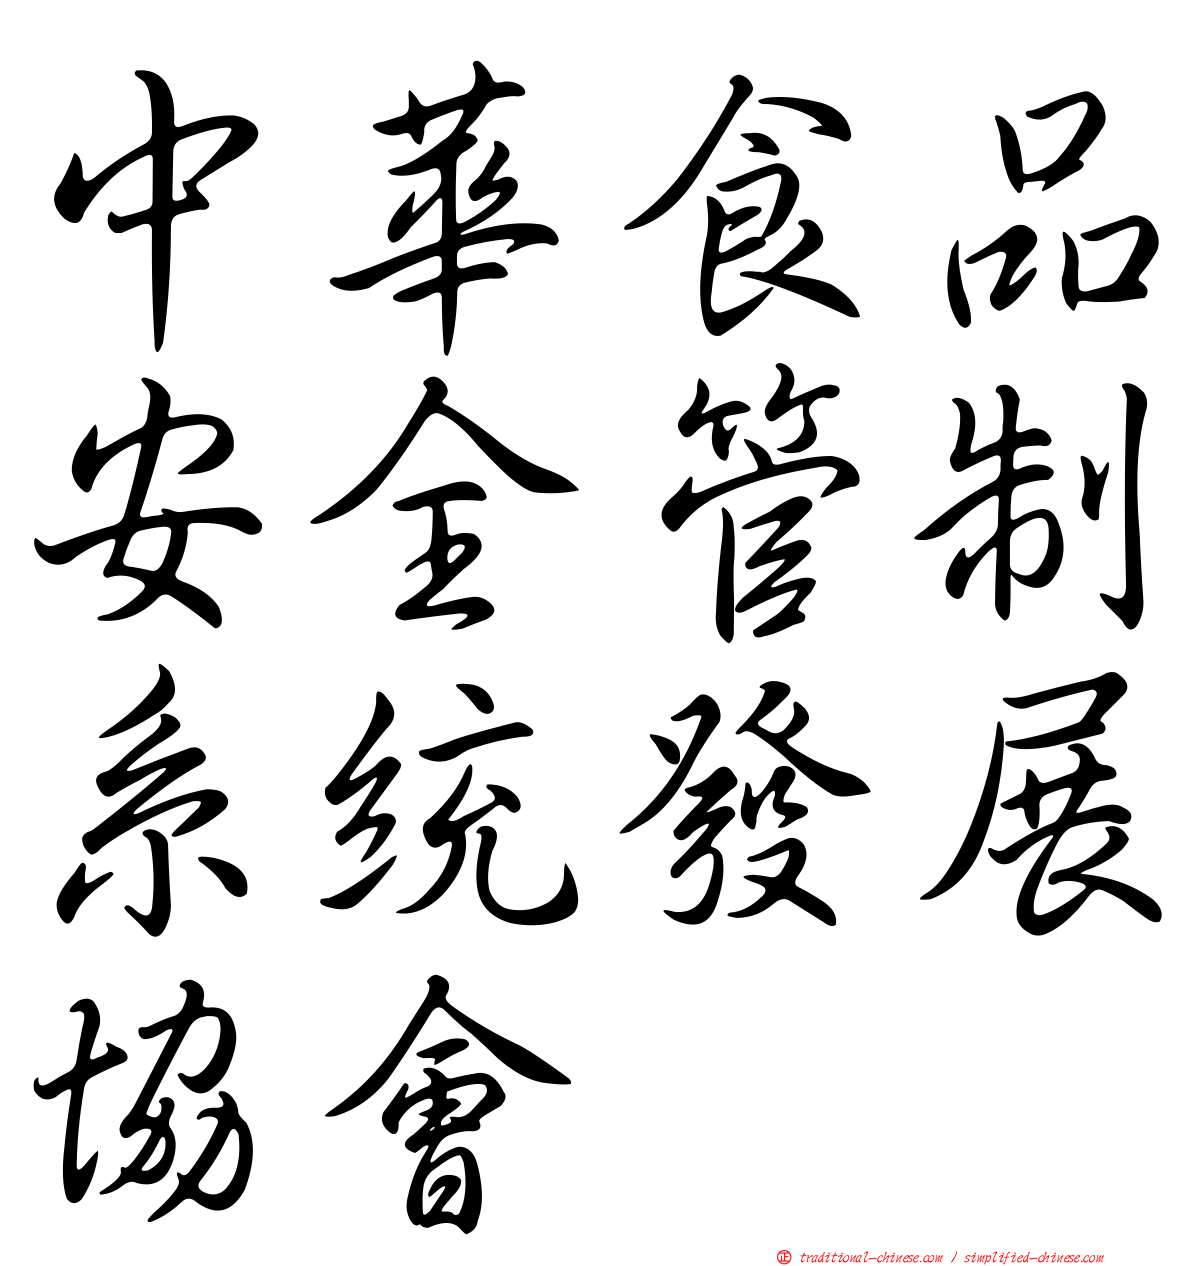 中華食品
安全管制
系統發展
協會
㊣ traditional-chinese.com / simplified-chinese.com